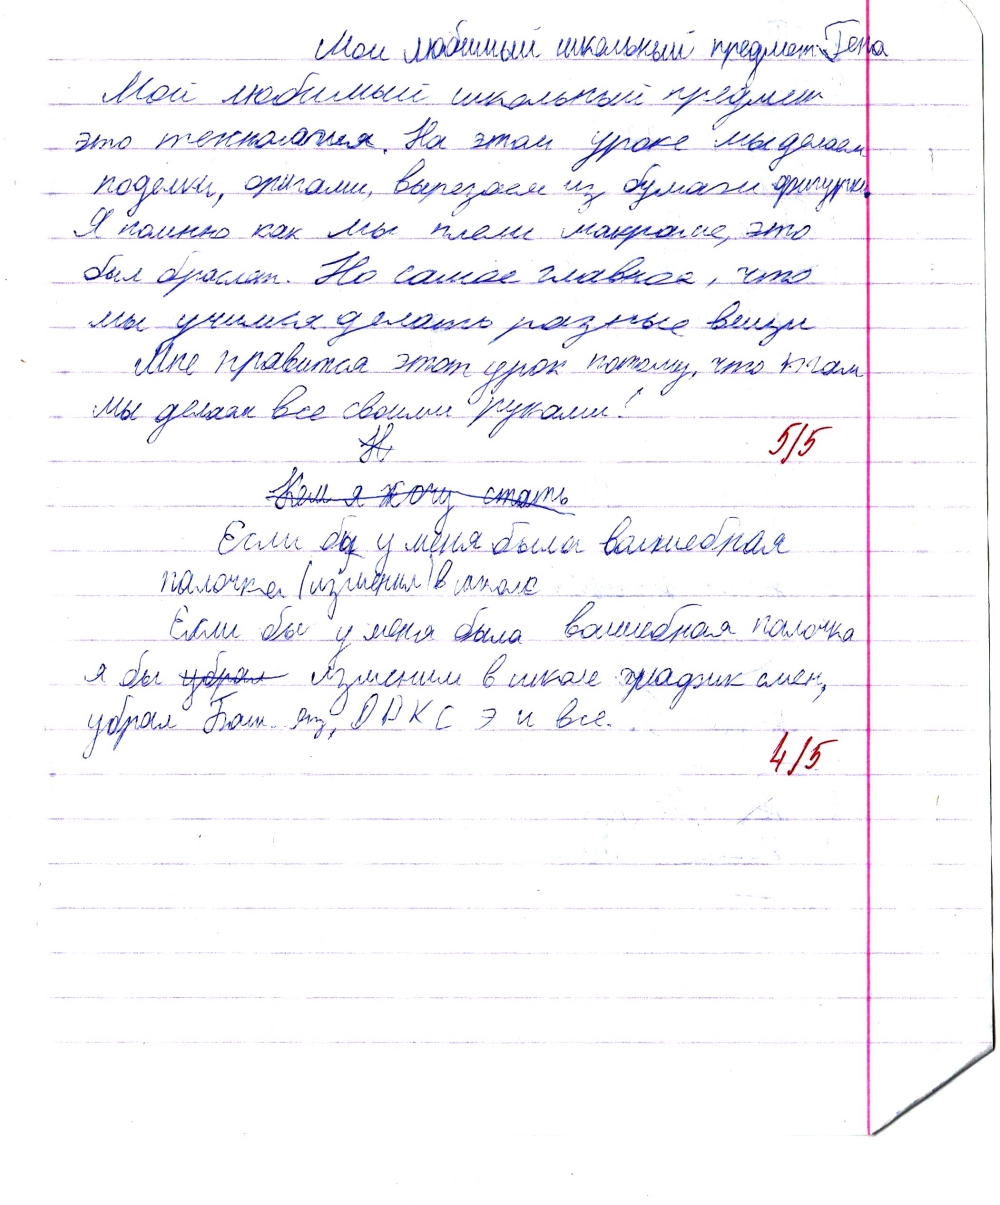 Мой любимый школьный предмет. Гена
Мой любимый школьный предмет
это технология. На этом уроке мы делаем
поделки, оригами, вырезаем из бумаги фигурки.
Я помню как мы плели макраме, это
был браслет. Но самое главное, что
мы учимся делать разные вещи
Мне нравится этот урок потому, что там
мы делаем все своими руками!
Н
5/5
Кем я хочу стать
Если бы у меня была волшебная
палочка (изменил) в школе
Если бы у меня была волшебная палочка
я бы убрал изменил в школе график смен,
убрал Баш. яз, ОДНК С Э и все.
4/5